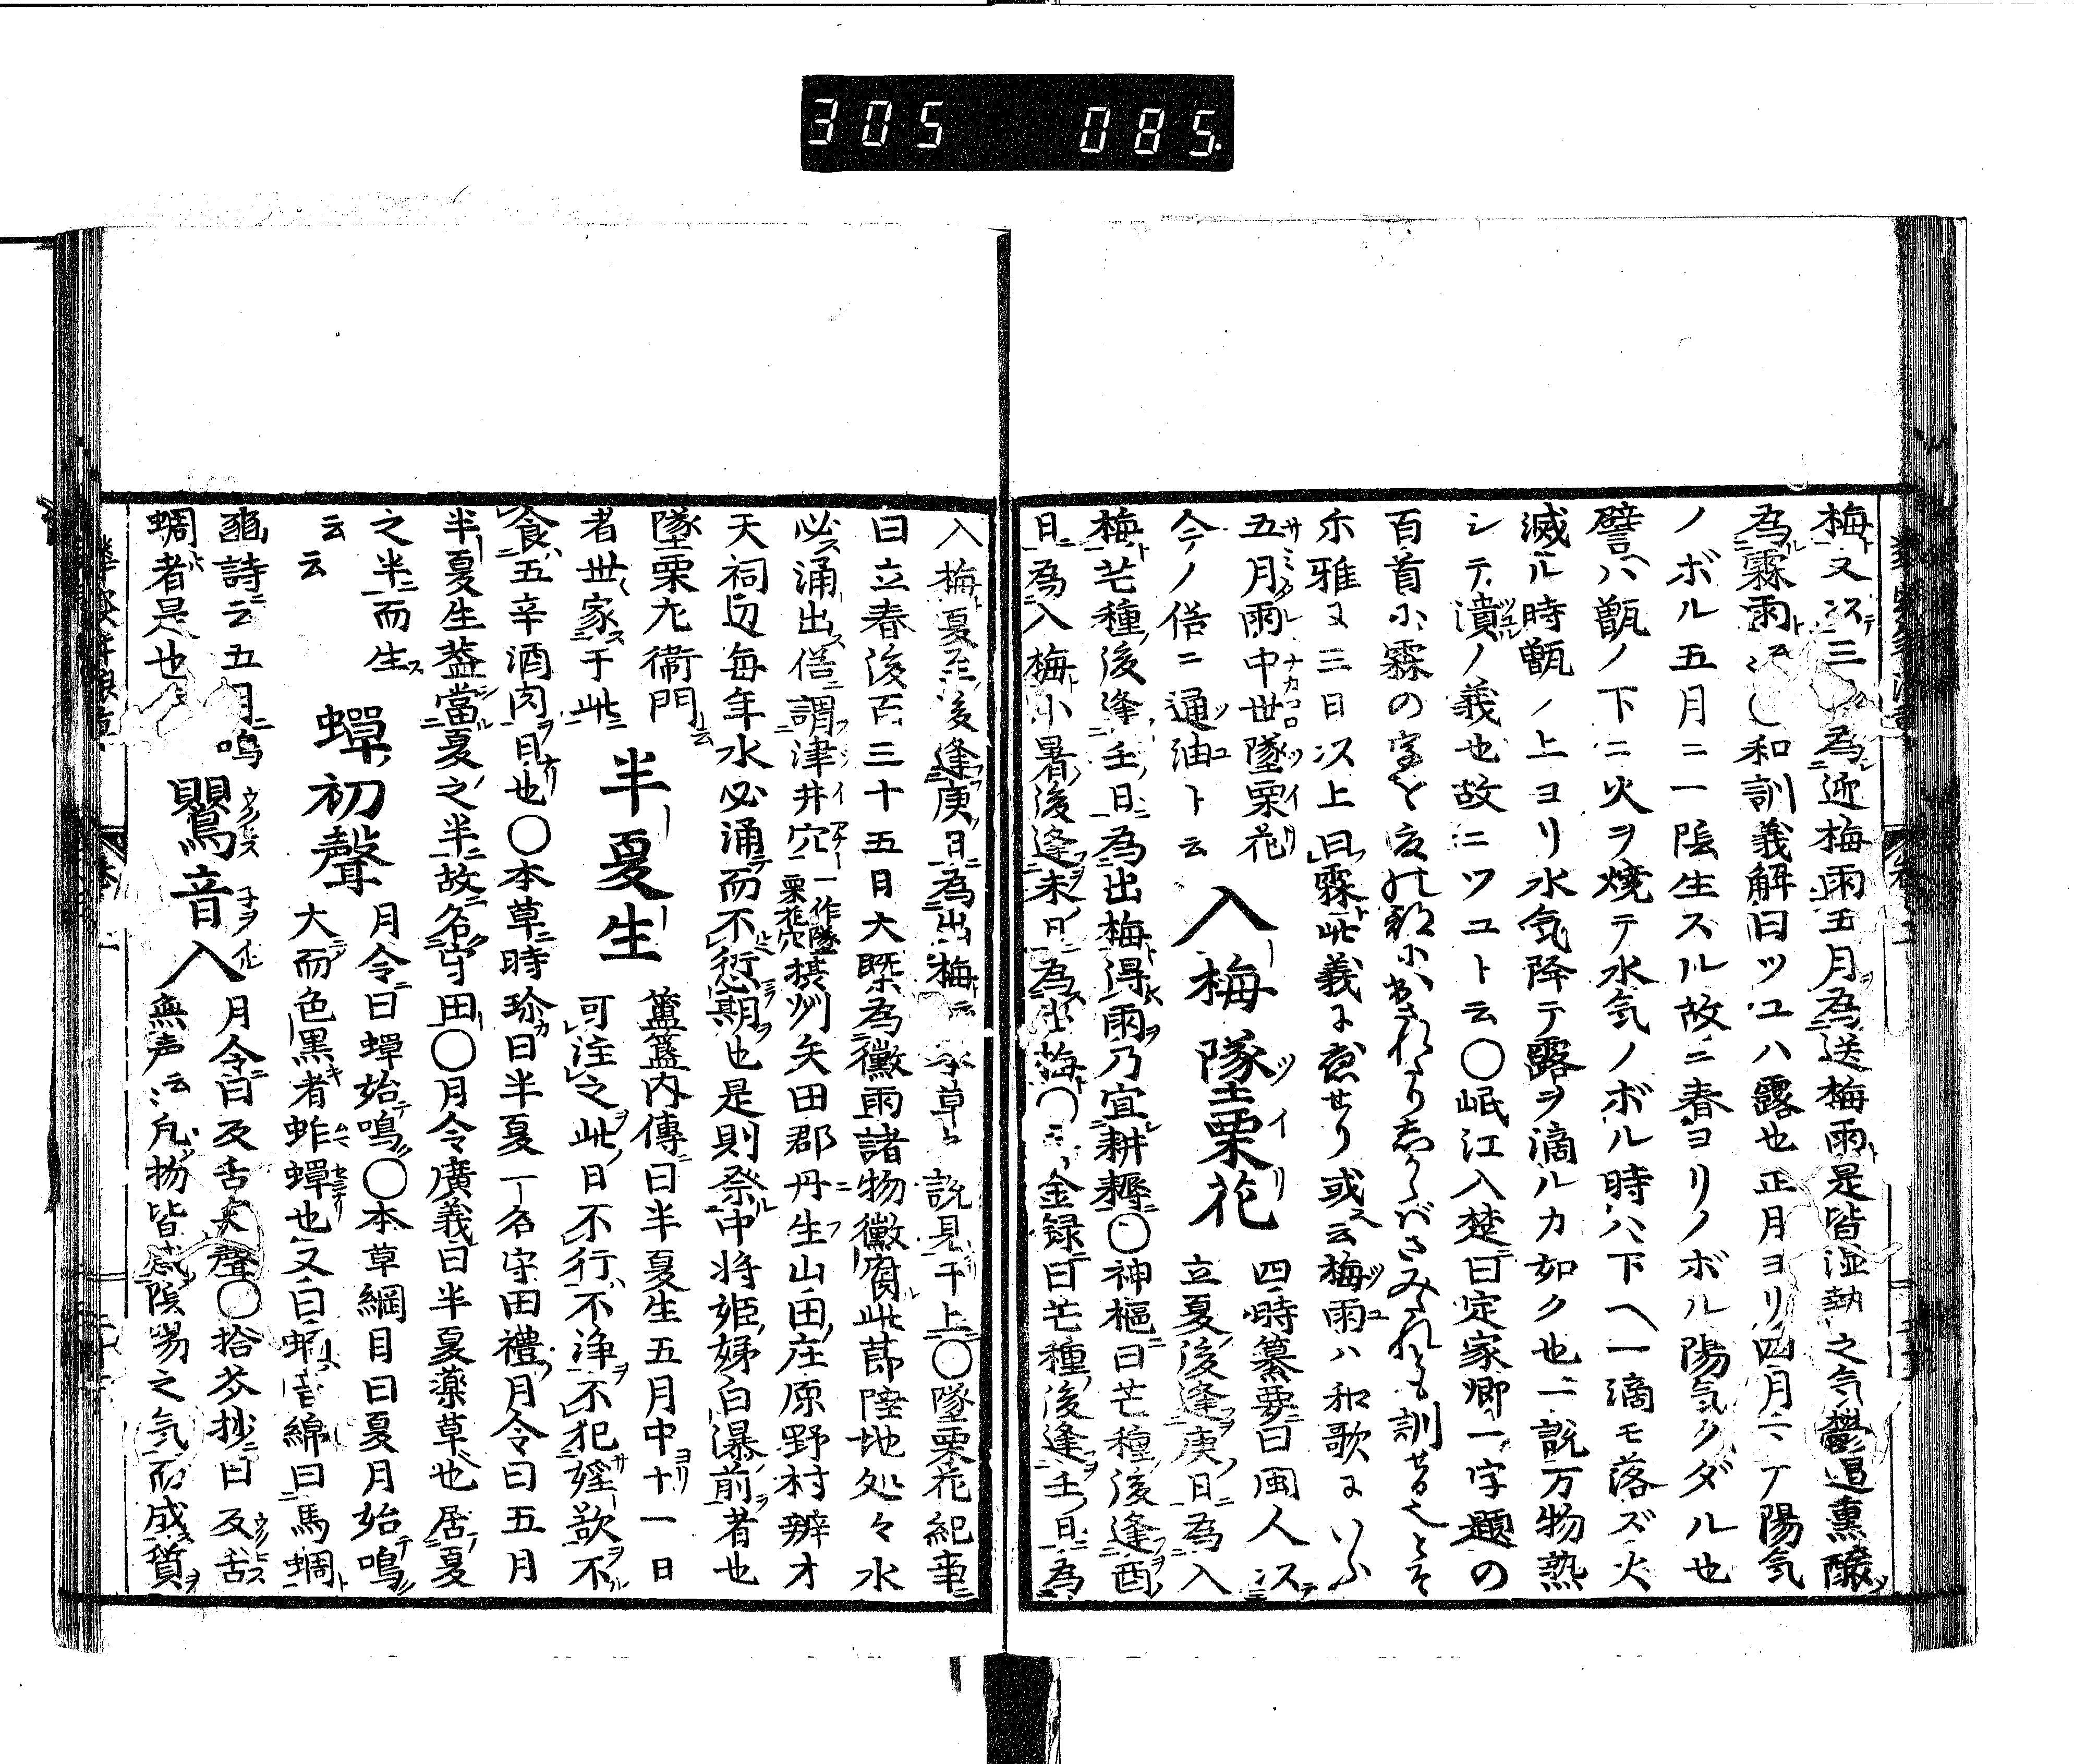 305 085.
梅又以三月為迎梅雨五月為送梅雨是皆湿熱之気鬱遏熏醸
為霖雨 和訓義解曰ツユハ露也正月ヨリ四月マテ陽気
ノボル五月ニ一陰生スル故ニ春ヨリノボル陽気クダル也
譬ハ甑ノ下ニ火ヲ焼テ水気ノボル時ハ下ヘ一滴モ落ズ火
滅ル時甑ノ上ヨリ水気降テ露ヲ滴ルカ如ク也一説万物熟
シテ潰ノ義也故ニツユト云〇岷江入楚曰定家卿一字題の
百首に霖の字を
尓雅に三日以上曰霖此義に意せり或云梅雨ハ和歌にいふ
五月雨中世墜栗花
今ノ俗ニ通油ト云
入梅墜栗花
四時纂要曰閩人以
立夏後逢庚日為入
梅芒種後逢壬日為出梅得雨乃宜耕耨〇神樞曰芒種後逢酉
日為入梅小暑後逢未日為出梅〇 金録曰芒種後逢壬日為
入梅夏至後逢庚日為出梅 本草 説見于上〇墜栗花紀事
曰立春後百三十五日大槩為黴雨諸物黴腐此節陸地処々水
必涌出俗謂津井穴一作墜栗花穴摂州矢田郡丹生山田庄原野村辨才
天祠辺毎年水必涌而不愆期也是則祭中将姫姊白瀑前者也
墜栗尢衞門云
半夏生
簠簋内傳曰半夏生五月中十一日
者世家于此
可注之此日不行不浄不犯婬欲不
食五辛酒肉日也〇本草時珍曰半夏一名守田禮月令曰五月
半夏生蓋當夏之半故名守田〇月令廣義曰半夏薬草也居夏
之半而生
云云
蟬初聲
月令曰蟬始鳴〇本草綱目曰夏月始鳴
大而色黒者蚱蟬也又曰 曰馬蜩
豳詩云五月鳴
蜩者是也
鸎音入
月令曰反舌無聲〇拾芥抄曰反舌
無声云凡物皆感陰陽之気而成質